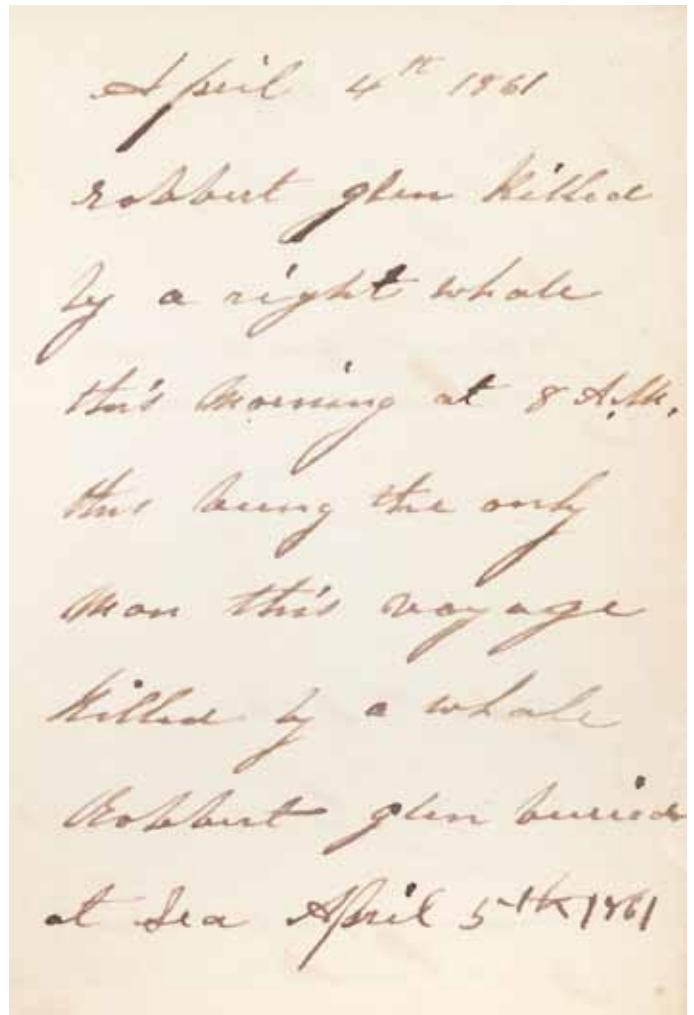 April 4th 1861
robbert glen Killed
by a right whale
this morning at 8 A.M.
this being the only
man this voyage
Killed by a whale
Robbert glen buried
at Sea April 5th 1861